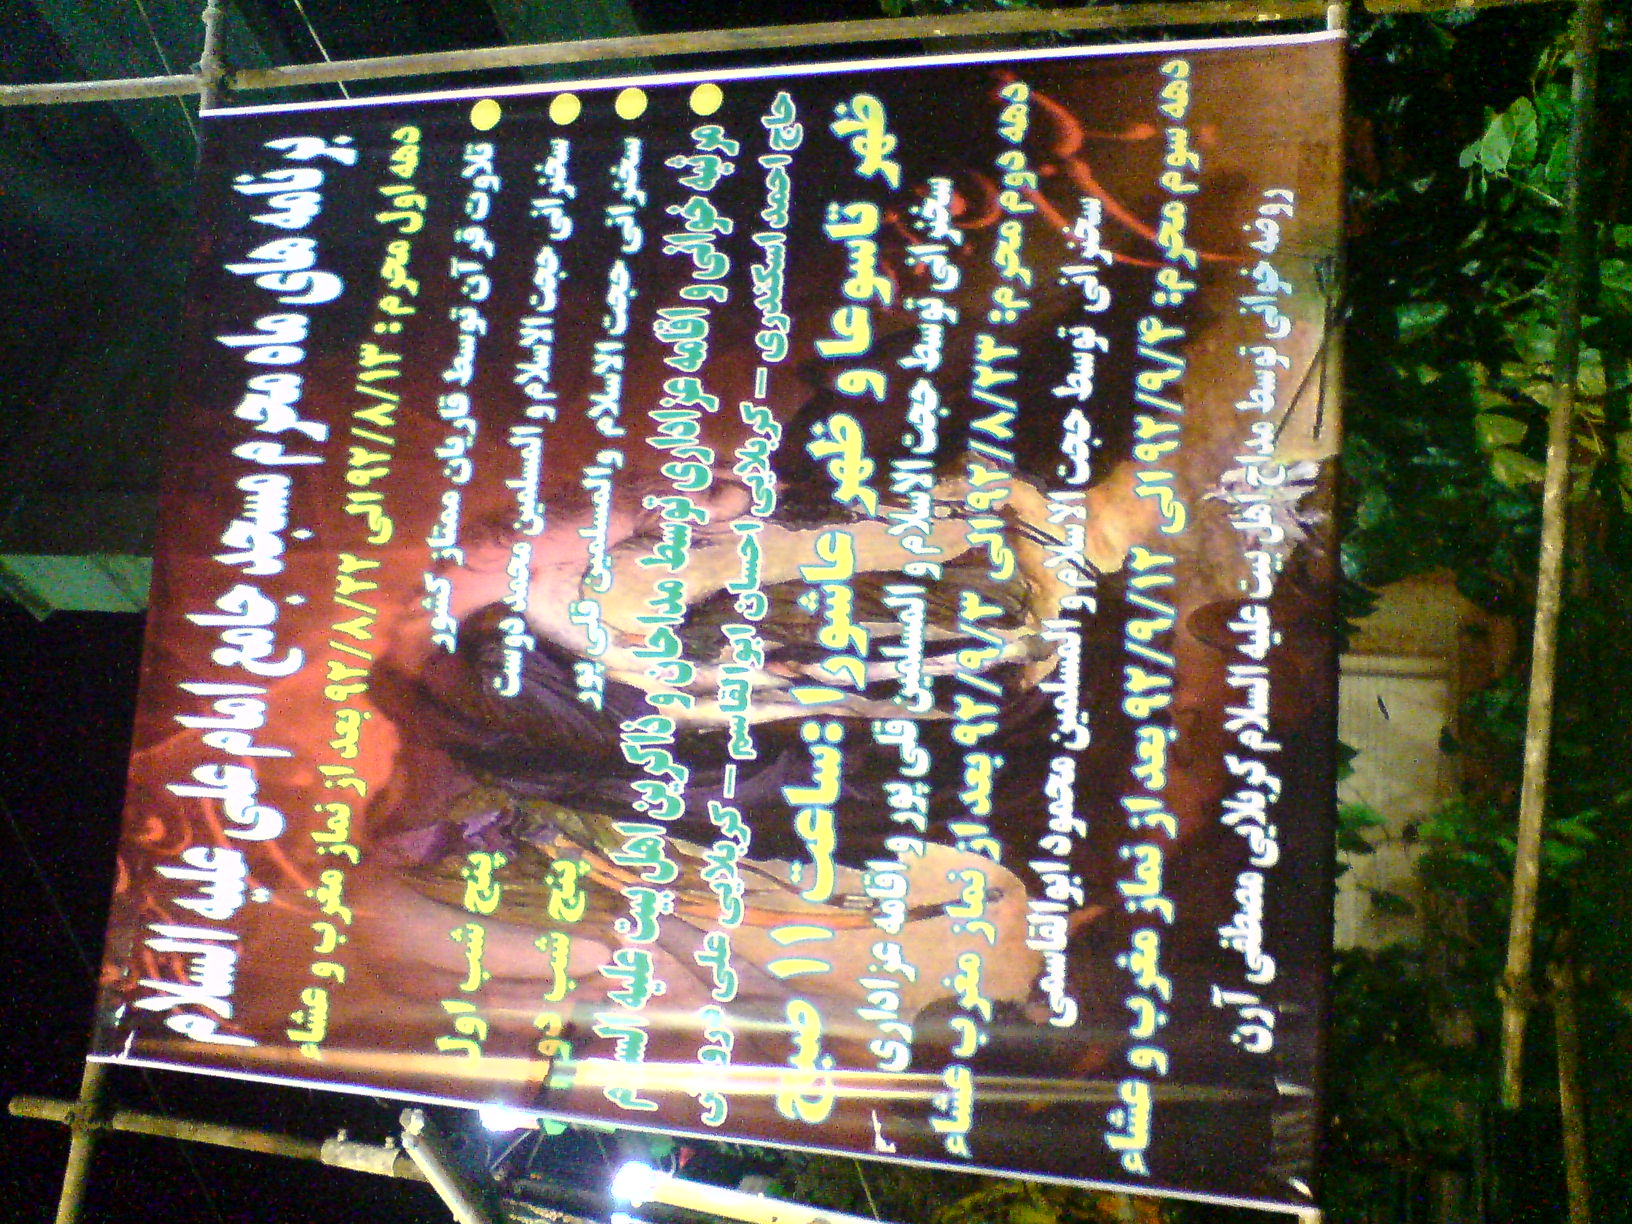 برنامه های ماه محرم مسجد جامع امام علی علیه السلام
دهه اول محرم : ۹۲/۸/۱۳ الی ۹۲/۸/۲۲ بعد از نماز مغرب و عشاء
تلاوت قرآن توسط قاریان ممتاز کشور
سخنرانی حجت الاسلام و المسلمین محمد دوست پنج شب اول
سخنرانی حجت الاسلام والمسلمین قلی پور پنج شب دوم
مرثیه خوانی و اقامه عزاداری توسط مداحان و ذاکرین اهل بیت علیه السلام
حاج احمد اسکندری - کربلایی احسان ابوالقاسم - کربلایی علی درویش
ظهر تاسوعا و ظهر عاشورا : ساعت ۱۱ صبح
سخنرانی توسط حجت الاسلام و المسلمین قلی پور و اقامه عزاداری
دهه دوم محرم: ۹۲/۸/۲۳ الی ۹۲/۹/۳ بعد از نماز مغرب عشاء
سخنرانی توسط حجت الاسلام و المسلمین محمود ابوالقاسمی
دهه سوم محرم: ۹۲/۹/۴ الی ۹۲/۹/۱۲ بعد از نماز مغرب و عشاء
روضه خوانی توسط مداح اهل بیت علیه السلام کربلایی مصطفی آرن